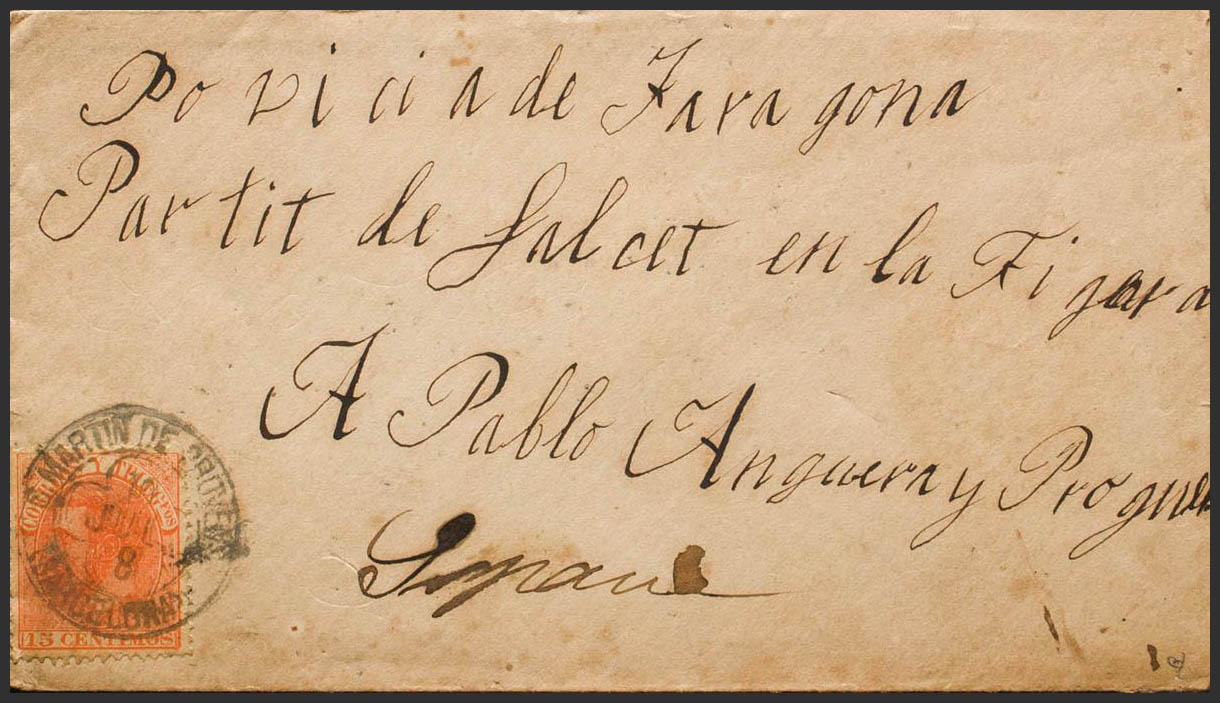 Po vi ci a de Taragona
Partit de Falcet en la Figara
A Pablo Anguera y Progue
España
MARTIN DE
CORREOS Y TELEGFOS
JUL
8
BARCELONA
15 CENTIMOS